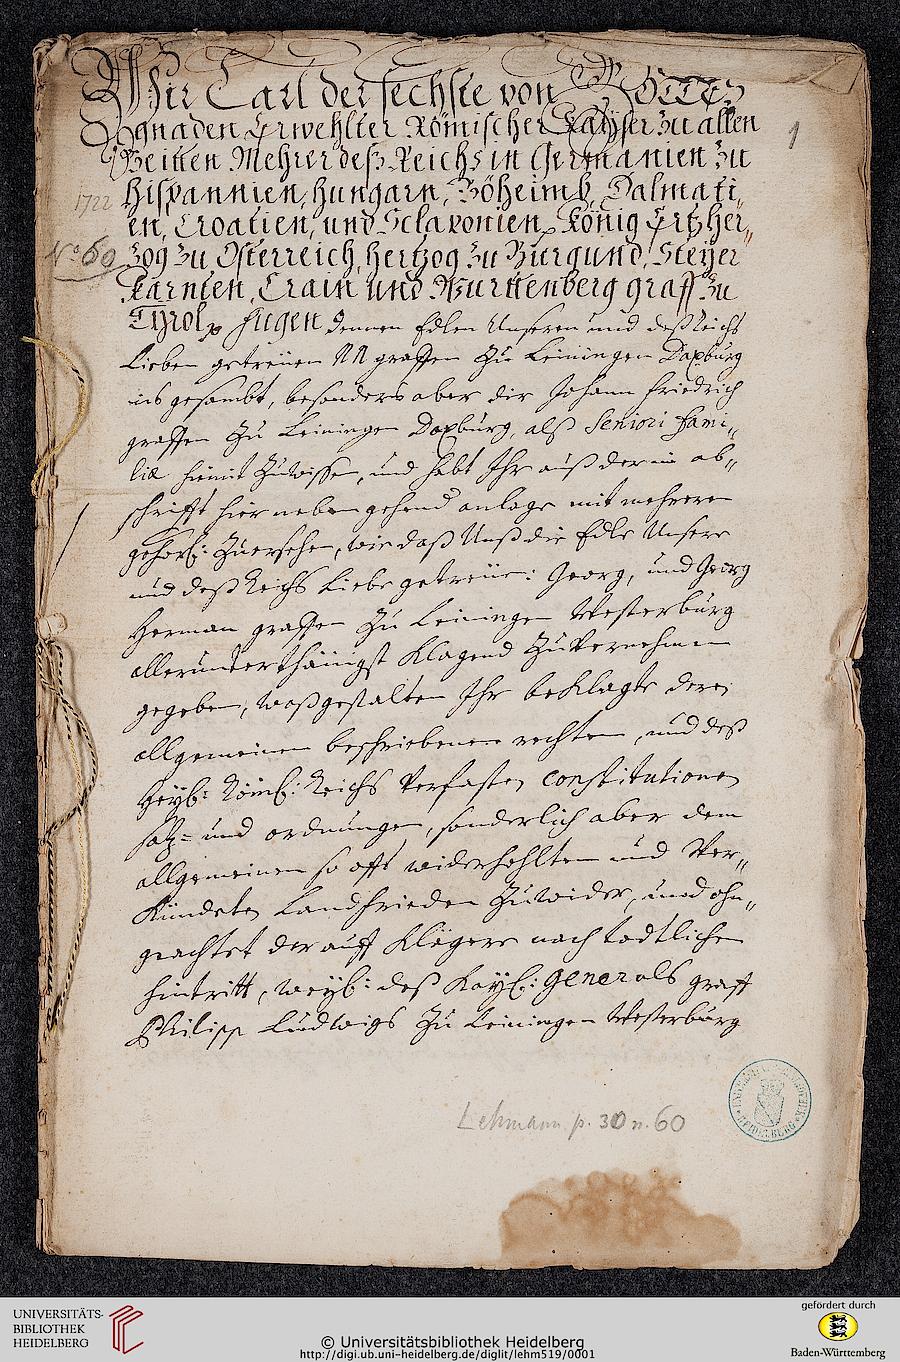 Wir Carl der sechste von Gottes
gnaden Erwehlter Römischer Kayser zu allen
Zeitten Mehrer deß Reichs in Germanien zu
Hispannien, Hungarn, Böheimb, Dalmati„
en, Croatien, und Sclavonien König Ertzher„
zog zu Osterreich, Hertzog zu Burgund, Steyer
Kärnten, Crain und Wurttenberg graff zu
Tyrol Fügen dennen Edlen Unseren und deß Reichs
Lieben getreüen NN graffen Zu Leiningen Daxburg
ins gesambt, besonders aber dir Johann Friedrich
graffen Zu Leiningen Daxburg, alß Seniori fami„
liæ hiemit Zuwissen, und habt Ihr auß der in ab„
schrifft hier neben gehend anlage mit mehrern
gehors: Zuersehen, wie daß Unß die Edle Unsere
und deß Reichs Liebe getreüe: Georg, und Georg
Herman graffen Zu Leiningen Westerburg
allerunterthänigst Klagend Zuvernehmen
gegeben, waßgestalten Ihr beklagte deren
allgemeinen beschriebenen rechten, und deß
Heyl: Röm: Reichs verfasten constitutionen
satz= und ordnungen, sonderlich aber dem
allgemeinen so offt widerhohlten und Ver„
Kündeten Landfrieden Zuwider, und ohn„
geachtet der auff Klägere nach todtlichen
hintritt, weyl: deß Kayl: Generals graff
Philipp Ludwigs Zu Leiningen Westerburg
1
1722
No 60
Lehmann p. 30 n. 60
HEIDELBERG
UNIVERSITÄTS-
BIBLIOTHEK
HEIDELBERG
© Universitätsbibliothek Heidelberg
http://digi.ub.uni-heidelberg.de/diglit/lehm519/0001
gefördert durch
Baden-Württemberg